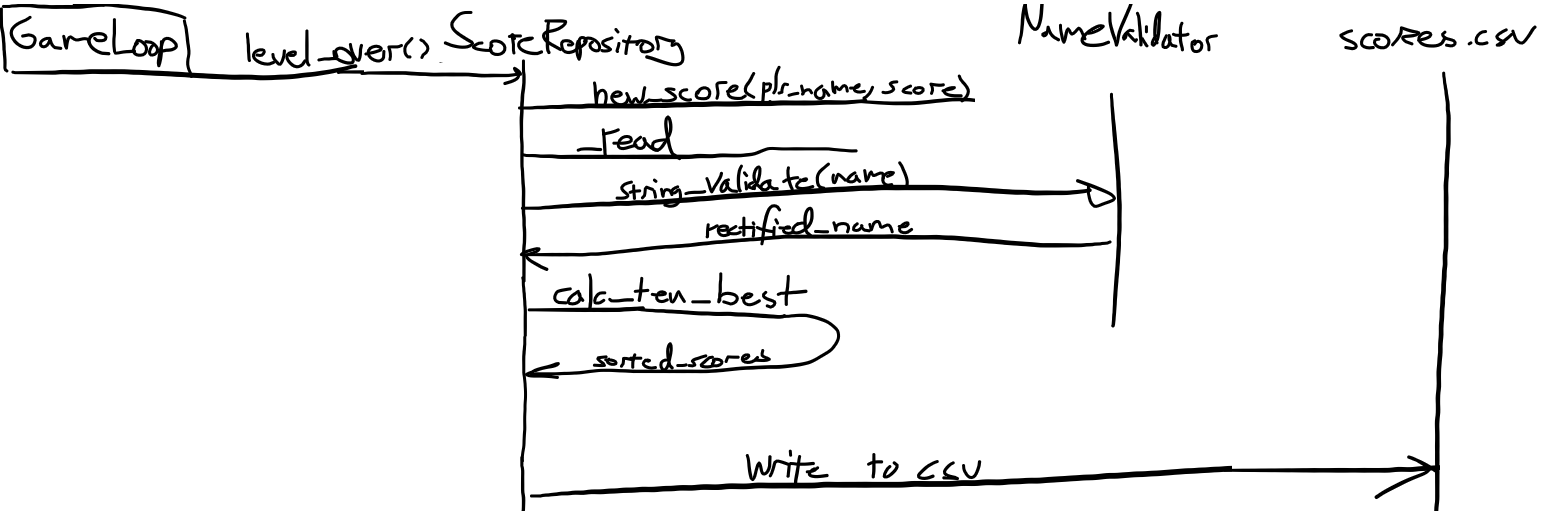 GameLoop level_over() ScoreRepository NameValidator scores.csv
new_score(plr_name, score)
_read
string_validate(name)
rectified_name
calc_ten_best
sorted_scores
Write to csv